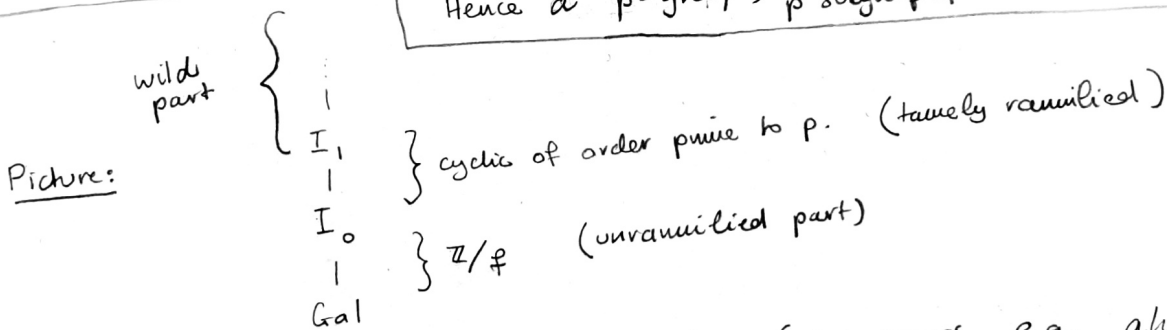 Hence a
wild
part
I₁ } cyclic of order prime to p. (tamely ramified)
Picture:
I₀
} ℤ/f (unramified part)
Gal